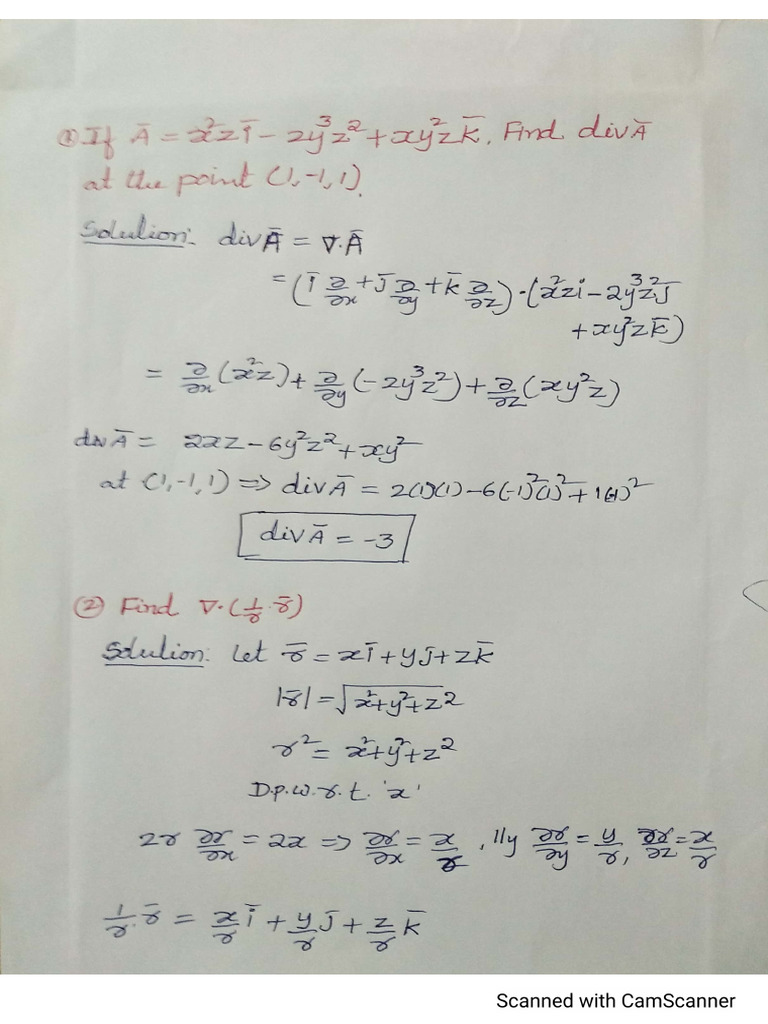 ① If Ā = x²z ī - 2y³z² + xy²z k̄. Find div Ā
at the point (1,-1,1).
Solution: div Ā = ∇.Ā
= (ī ∂/∂x + j̄ ∂/∂y + k̄ ∂/∂z) · (x²zi - 2y³z² j̄
+ xy²z k̄)
= ∂/∂x (x²z) + ∂/∂y (-2y³z²) + ∂/∂z (xy²z)
div Ā = 2xz - 6y²z² + xy²
at (1,-1,1) => div Ā = 2(1)(1) - 6(-1)²(1)² + 1(-1)²
div Ā = -3
② Find ∇.(1/r . r̄)
Solution: Let r̄ = x ī + y j̄ + z k̄
|r̄| = √x²+y²+z²
r² = x²+y²+z²
D.p.w.r.t. 'x'
2r ∂r/∂x = 2x => ∂r/∂x = x/r , lly ∂r/∂y = y/r, ∂r/∂z = x/r
1/r . r̄ = x/r ī + y/r j̄ + z/r k̄
Scanned with CamScanner